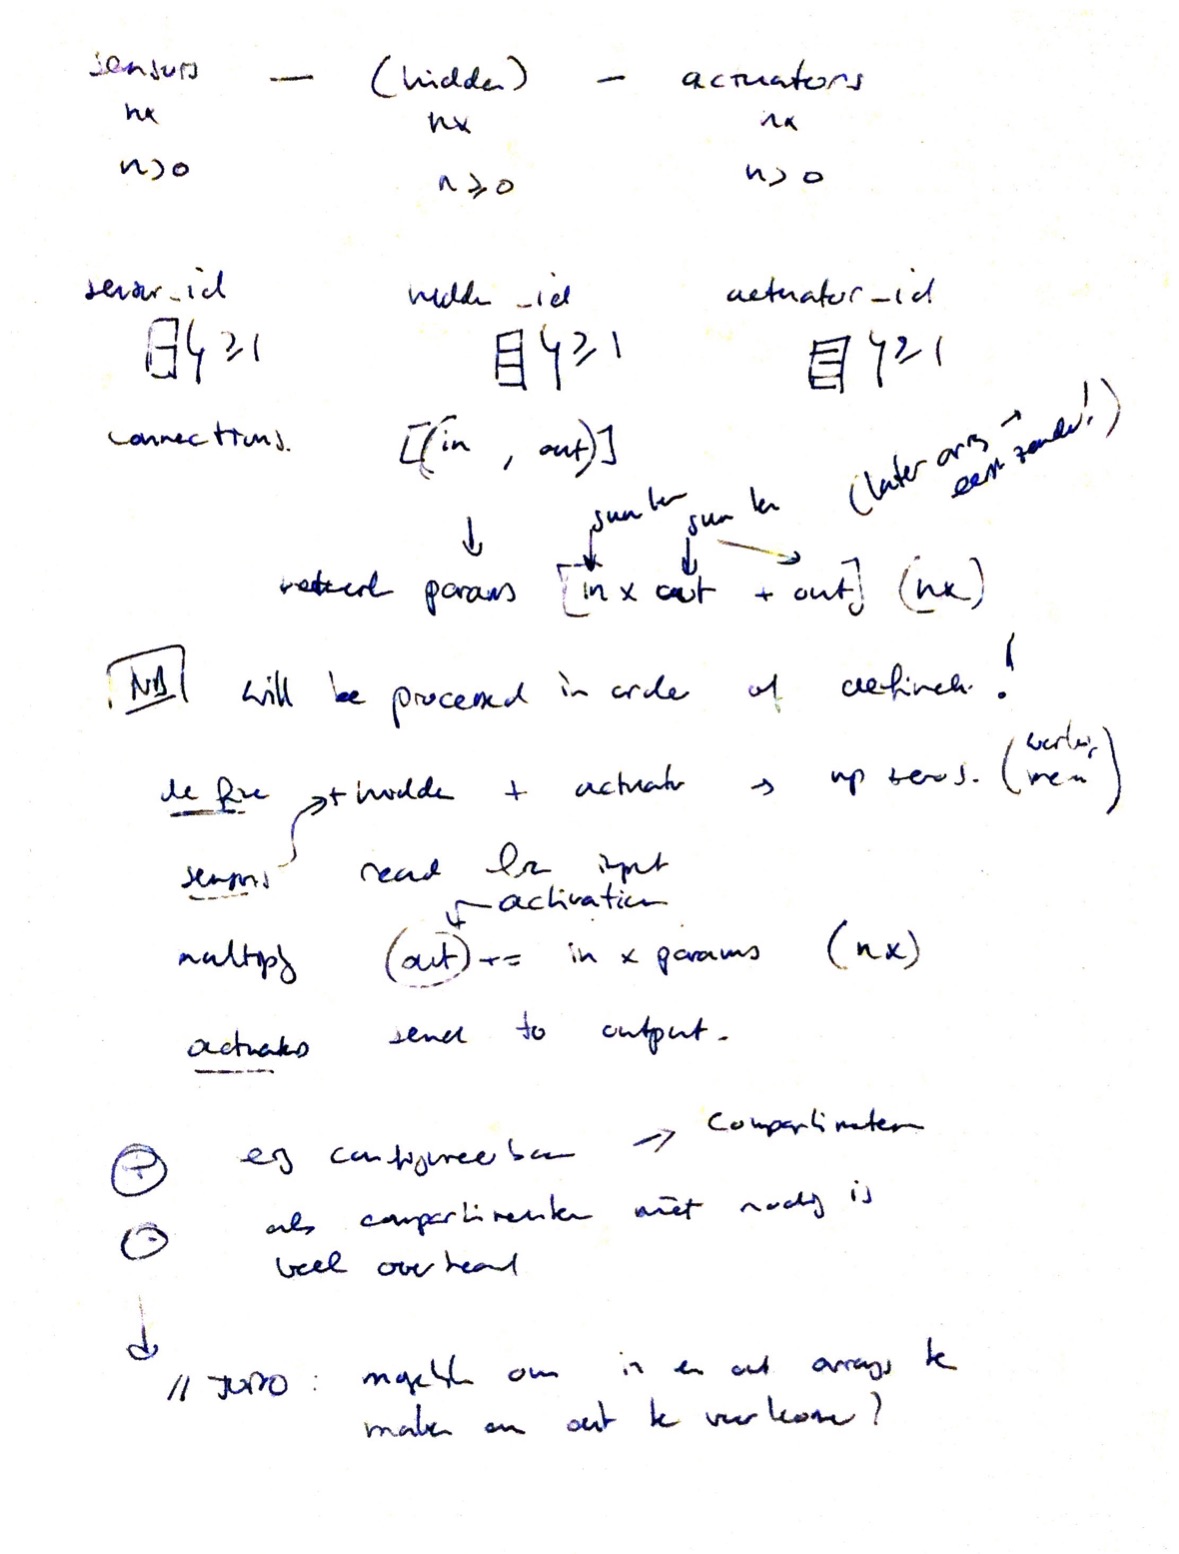 sensors — (hidden) — actuators
nx nx nx
n>0 n≥0 n>0
sensor_id hidde_id actuator_id
≥1 ≥1 ≥1
connections. [(in , out)]
(later ors →
eerst zonder!)
↓
params [in x out + out] (nx)
NB will be processed in order of definition!
+ hidde + actuator →
sensors read input
activation
multiply (out) += in x params (nx)
actuators send to output.
+ configureerbaar → Compartimenten
- als compartimenten niet nodig is
veel overhead
↓
// TODO : mogelijk om in en out arrays te
maken om out te voorkomen?